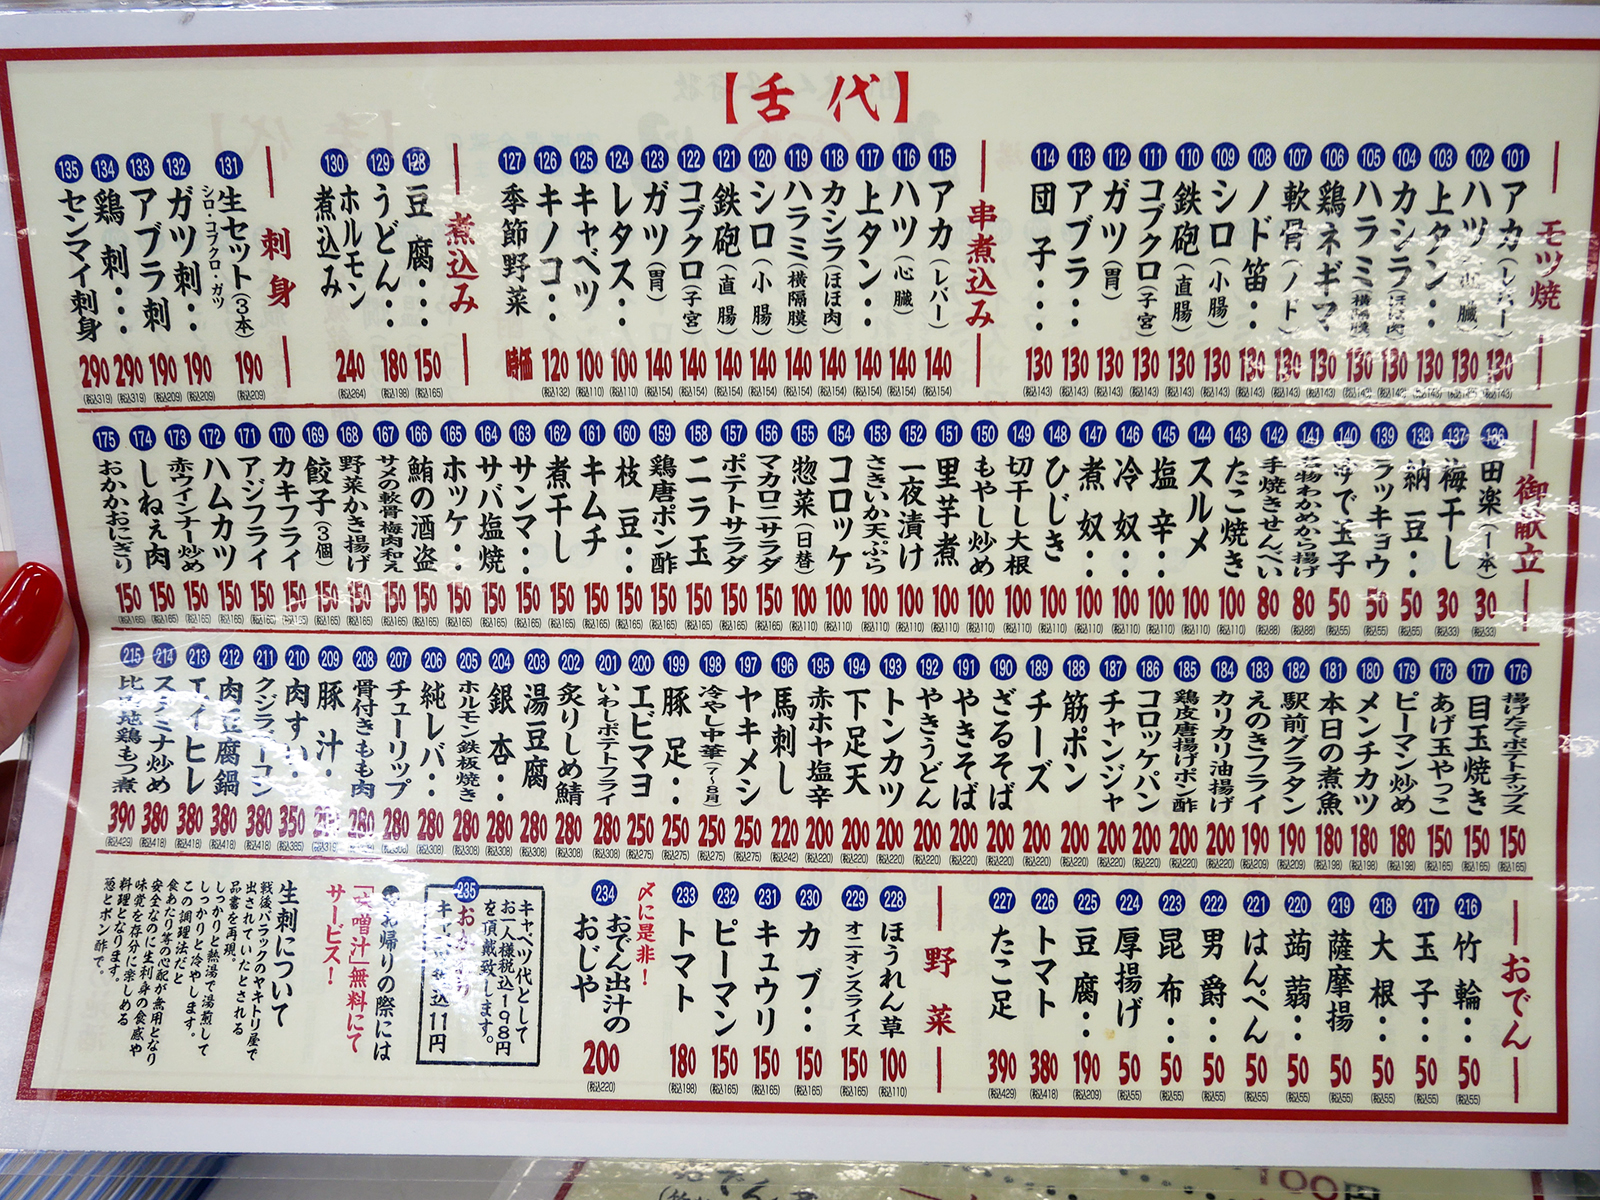 【舌代】
モツ焼
101 アカ(レバー) 130 (税込143)
102 ハツ(心臓) 130 (税込143)
103 上タン・・ 130 (税込143)
104 カシラ(ほほ肉) 130 (税込143)
105 ハラミ(横隔膜) 130 (税込143)
106 鶏ネギマ 130 (税込143)
107 軟骨(ノド) 130 (税込143)
108 ノド笛・・ 130 (税込143)
109 シロ(小腸) 130 (税込143)
110 鉄砲(直腸) 130 (税込143)
111 コブクロ(子宮) 130 (税込143)
112 ガツ(胃) 130 (税込143)
113 アブラ・・ 130 (税込143)
114 団子・・・ 130 (税込143)
串煮込み
115 アカ(レバー) 140 (税込154)
116 ハツ(心臓) 140 (税込154)
117 上タン・・ 140 (税込154)
118 カシラ(ほほ肉) 140 (税込154)
119 ハラミ(横隔膜) 140 (税込154)
120 シロ(小腸) 140 (税込154)
121 鉄砲(直腸) 140 (税込154)
122 コブクロ(子宮) 140 (税込154)
123 ガツ(胃) 140 (税込154)
124 レタス・・ 100 (税込110)
125 キャベツ 100 (税込110)
126 キノコ・・ 120 (税込132)
127 季節野菜 時価
煮込み
128 豆腐・・・ 150 (税込165)
129 うどん・・ 180 (税込198)
130 ホルモン煮込み 240 (税込264)
刺身
131 生セット(3本) シロ・コブクロ・ガツ 190 (税込209)
132 ガツ刺・・ 190 (税込209)
133 アブラ刺 190 (税込209)
134 鶏刺・・・ 290 (税込319)
135 センマイ刺身 290 (税込319)
御献立
136 田楽(1本) 30 (税込33)
137 梅干し 30 (税込33)
138 納豆・・ 50 (税込55)
139 ラッキョウ 50 (税込55)
140 ゆで玉子 50 (税込55)
141 名物わかめから揚げ 80 (税込88)
142 手焼きせんべい 80 (税込88)
143 たこ焼き 100 (税込110)
144 スルメ 100 (税込110)
145 塩辛・・ 100 (税込110)
146 冷奴・・ 100 (税込110)
147 煮奴・・ 100 (税込110)
148 ひじき 100 (税込110)
149 切干し大根 100 (税込110)
150 もやし炒め 100 (税込110)
151 里芋煮 100 (税込110)
152 一夜漬け 100 (税込110)
153 さきいか天ぷら 100 (税込110)
154 コロッケ 100 (税込110)
155 惣菜(日替) 100 (税込110)
156 マカロニサラダ 150 (税込165)
157 ポテトサラダ 150 (税込165)
158 ニラ玉 150 (税込165)
159 鶏唐ポン酢 150 (税込165)
160 枝豆・・ 150 (税込165)
161 キムチ 150 (税込165)
162 煮干し 150 (税込165)
163 サンマ・・ 150 (税込165)
164 サバ塩焼 150 (税込165)
165 ホッケ・・ 150 (税込165)
166 鮪の酒盗 150 (税込165)
167 サメの軟骨梅肉和え 150 (税込165)
168 野菜かき揚げ 150 (税込165)
169 餃子(3個) 150 (税込165)
170 カキフライ 150 (税込165)
171 アジフライ 150 (税込165)
172 ハムカツ 150 (税込165)
173 赤ウインナー炒め 150 (税込165)
174 しねぇ肉 150 (税込165)
175 おかかおにぎり 150 (税込165)
176 揚げたてポテトチップス 150 (税込165)
177 目玉焼き 150 (税込165)
178 あげ玉やっこ 150 (税込165)
179 ピーマン炒め 180 (税込198)
180 メンチカツ 180 (税込198)
181 本日の煮魚 180 (税込198)
182 駅前グラタン 190 (税込209)
183 えのきフライ 190 (税込209)
184 カリカリ油揚げ 200 (税込220)
185 鶏皮唐揚げポン酢 200 (税込220)
186 コロッケパン 200 (税込220)
187 チャンジャ 200 (税込220)
188 筋ポン 200 (税込220)
189 チーズ 200 (税込220)
190 ざるそば 200 (税込220)
191 やきそば 200 (税込220)
192 やきうどん 200 (税込220)
193 トンカツ 200 (税込220)
194 下足天 200 (税込220)
195 赤ホヤ塩辛 200 (税込220)
196 馬刺し 220 (税込242)
197 ヤキメシ 250 (税込275)
198 冷やし中華(7〜8月) 250 (税込275)
199 豚足・・ 250 (税込275)
200 エビマヨ 250 (税込275)
201 いわしポテトフライ 280 (税込308)
202 炙りしめ鯖 280 (税込308)
203 湯豆腐 280 (税込308)
204 銀杏・・ 280 (税込308)
205 ホルモン鉄板焼き 280 (税込308)
206 純レバ・・ 280 (税込308)
207 チューリップ 280 (税込308)
208 骨付きもも肉 280 (税込308)
209 豚汁・・ 290 (税込319)
210 肉すい・・ 350 (税込385)
211 クジラベーコン 380 (税込418)
212 肉豆腐鍋 380 (税込418)
213 エイヒレ 380 (税込418)
214 スタミナ炒め 380 (税込418)
215 比内地鶏もつ煮 390 (税込429)
おでん
216 竹輪・・ 50 (税込55)
217 玉子・・ 50 (税込55)
218 大根・・ 50 (税込55)
219 薩摩揚 50 (税込55)
220 蒟蒻・・ 50 (税込55)
221 はんぺん 50 (税込55)
222 男爵・・ 50 (税込55)
223 昆布・・ 50 (税込55)
224 厚揚げ 50 (税込55)
225 豆腐・・ 190 (税込209)
226 トマト 380 (税込418)
227 たこ足 390 (税込429)
野菜
228 ほうれん草 100 (税込110)
229 オニオンスライス 150 (税込165)
230 カブ・・ 150 (税込165)
231 キュウリ 150 (税込165)
232 ピーマン 150 (税込165)
233 トマト 180 (税込198)
〆に是非!
234 おでん出汁のおじや 200 (税込220)
キャベツ代として
お一人様税込198円
を頂戴致します。
235 おかわり
キャベツ税込11円
●お帰りの際には
「味噌汁」無料にて
サービス!
生刺について
戦後バラックのヤキトリ屋で
出されていたとされる
品書を再現。
しっかりと熱湯で湯煎して
しっかりと冷やします。
この調理法だと
食あたり等の心配が無用となり
安全なのに生刺身の食感や
味覚を存分に楽しめる
料理となります。
葱とポン酢で。